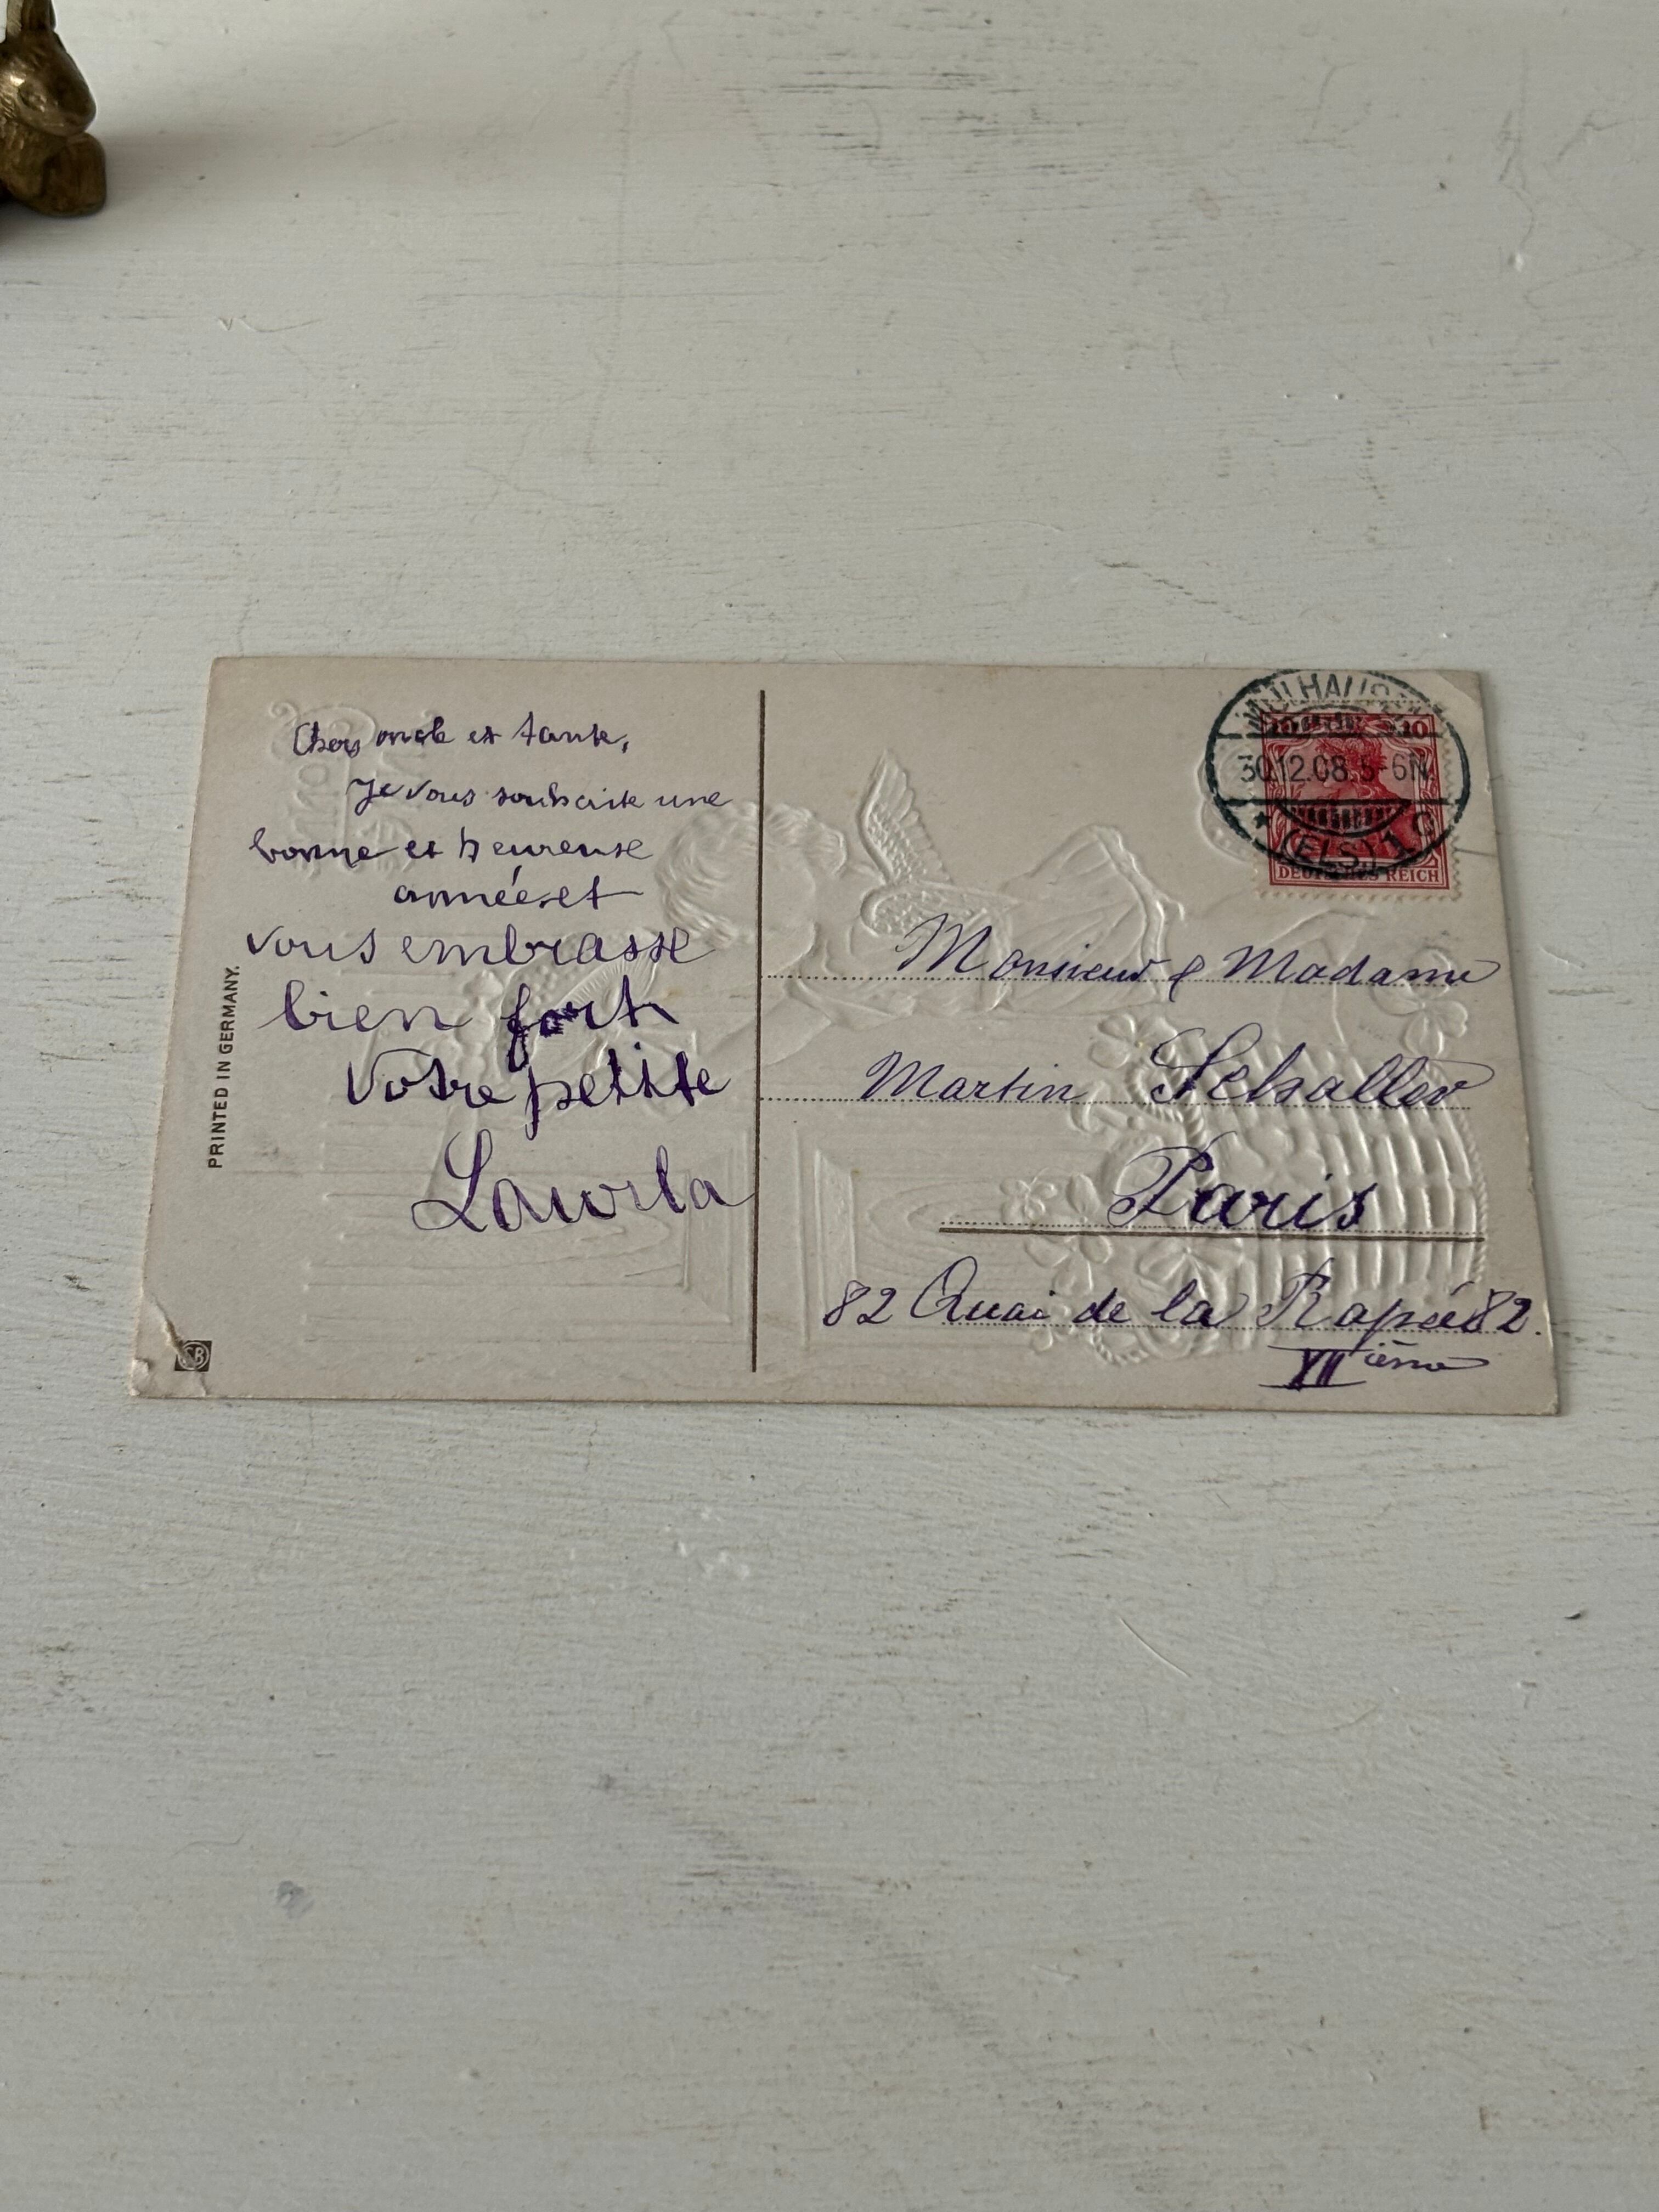 Chers oncle et tante,
Je vous souhaite une
bonne et heureuse
année et
vous embrasse
bien fort
Votre petite
PRINTED IN GERMANY.
MÜLHAUSEN
30.12.08.5-6N.
* (ELS.) 1
10 10
DEUTSCHES REICH
Monsieur & Madame
Martin Schaller
Paris
82 Quai de la Rapée 82.
XII ième